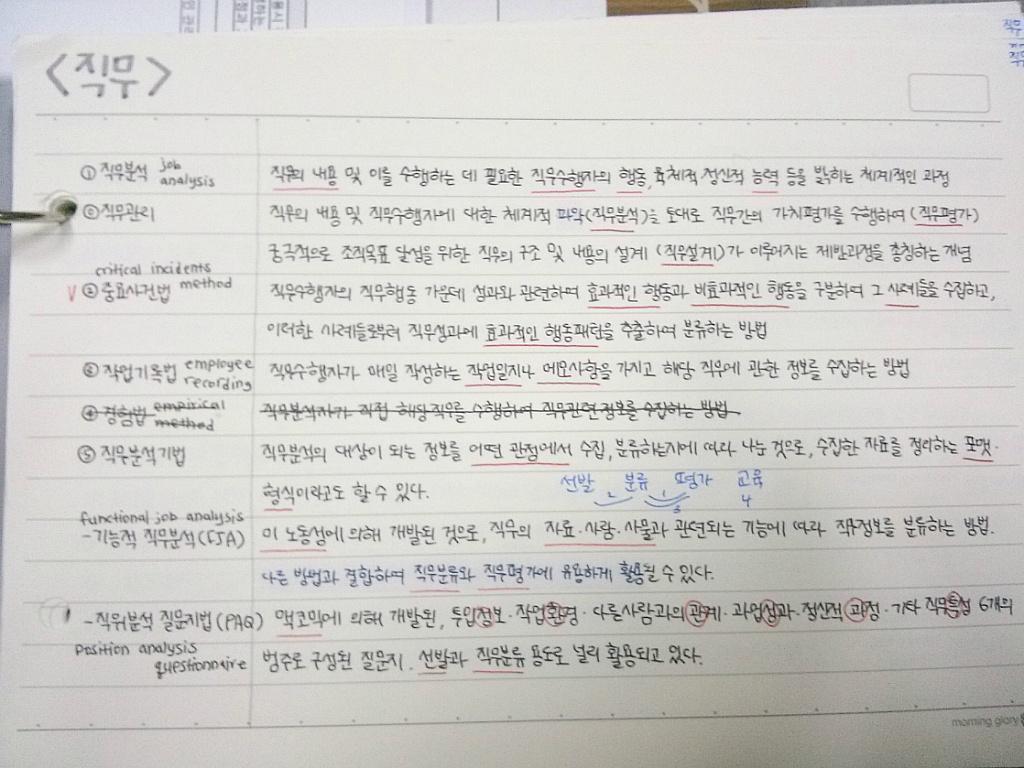 <직무>
① 직무분석 job analysis 직무의 내용 및 이를 수행하는 데 필요한 직무수행자의 행동, 육체적 정신적 능력 등을 밝히는 체계적인 과정
② 직무관리 직무의 내용 및 직무수행자에 대한 체계적 파악(직무분석)을 토대로 직무간의 가치평가를 수행하여 (직무평가)
궁극적으로 조직목표 달성을 위한 직무의 구조 및 내용의 설계 (직무설계)가 이루어지는 제반과정을 총칭하는 개념
critical incidents method
V ③ 중요사건법 직무수행자의 직무행동 가운데 성과와 관련하여 효과적인 행동과 비효과적인 행동을 구분하여 그 사례들을 수집하고,
이러한 사례들로부터 직무성과에 효과적인 행동패턴을 추출하여 분류하는 방법
작업기록법 employee recording 직무수행자가 매일 작성하는 작업일지나 메모사항을 가지고 해당 직무에 관한 정보를 수집하는 방법
④ 경험법 empirical method 직무분석자가 직접 해당직무를 수행하여 직무관련정보를 수집하는 방법
⑤ 직무분석기법 직무분석의 대상이 되는 정보를 어떤 관점에서 수집, 분류하는지에 따라 나눈 것으로, 수집한 자료를 정리하는 포맷·
형식이라고도 할 수 있다. 선발 분류 평가 교육
2 1 3 4
functional job analysis
- 기능적 직무분석(FJA) 미 노동성에 의해 개발된 것으로, 직무의 자료·사람·사물과 관련되는 기능에 따라 직무정보를 분류하는 방법.
다른 방법과 결합하여 직무분류와 직무평가에 유용하게 활용될 수 있다.
- 직위분석 질문지법(PAQ) 맥코믹에 의해 개발된, 투입정보·작업환경·다른사람과의 관계·과업성과·정신적 과정·기타 직무특성 6개의
position analysis questionnaire 범주로 구성된 질문지. 선발과 직무분류 용도로 널리 활용되고 있다.
morning glory